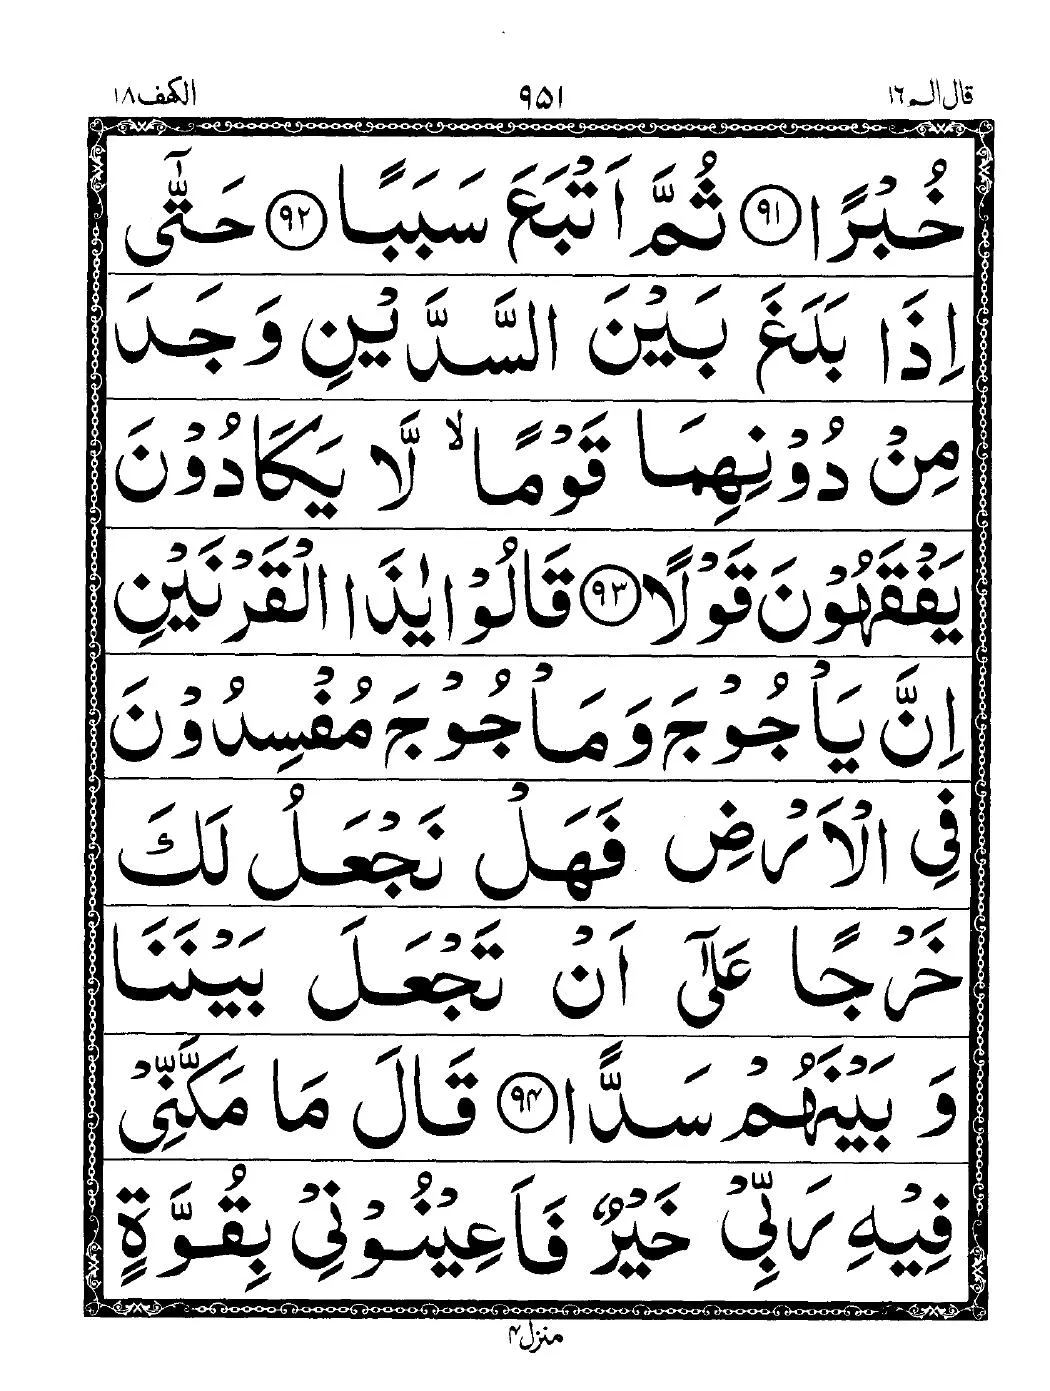 قال الم ١٦ ٩٥١ الكهف ١٨
خُبْرًا ٩١ ثُمَّ اَتْبَعَ سَبَبًا ٩٢ حَتّٰۤى
اِذَا بَلَغَ بَيْنَ السَّدَّيْنِ وَجَدَ
مِنْ دُوْنِهِمَا قَوْمًا ۙ لَّا يَكَادُوْنَ
يَفْقَهُوْنَ قَوْلًا ٩٣ قَالُوْا يٰذَا الْقَرْنَيْنِ
اِنَّ يَاْجُوْجَ وَمَاْجُوْجَ مُفْسِدُوْنَ
فِي الْاَرْضِ فَهَلْ نَجْعَلُ لَكَ
خَرْجًا عَلٰۤى اَنْ تَجْعَلَ بَيْنَنَا
وَ بَيْنَهُمْ سَدًّا ٩٤ قَالَ مَا مَكَّنِّيْ
فِيْهِ رَبِّيْ خَيْرٌ فَاَعِيْنُوْنِيْ بِقُوَّةٍ
منزل ٤